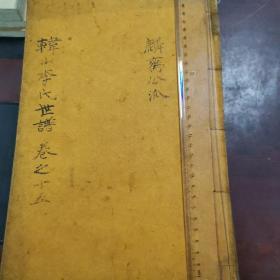 麟齋公派
韓山李氏世譜 卷之十五